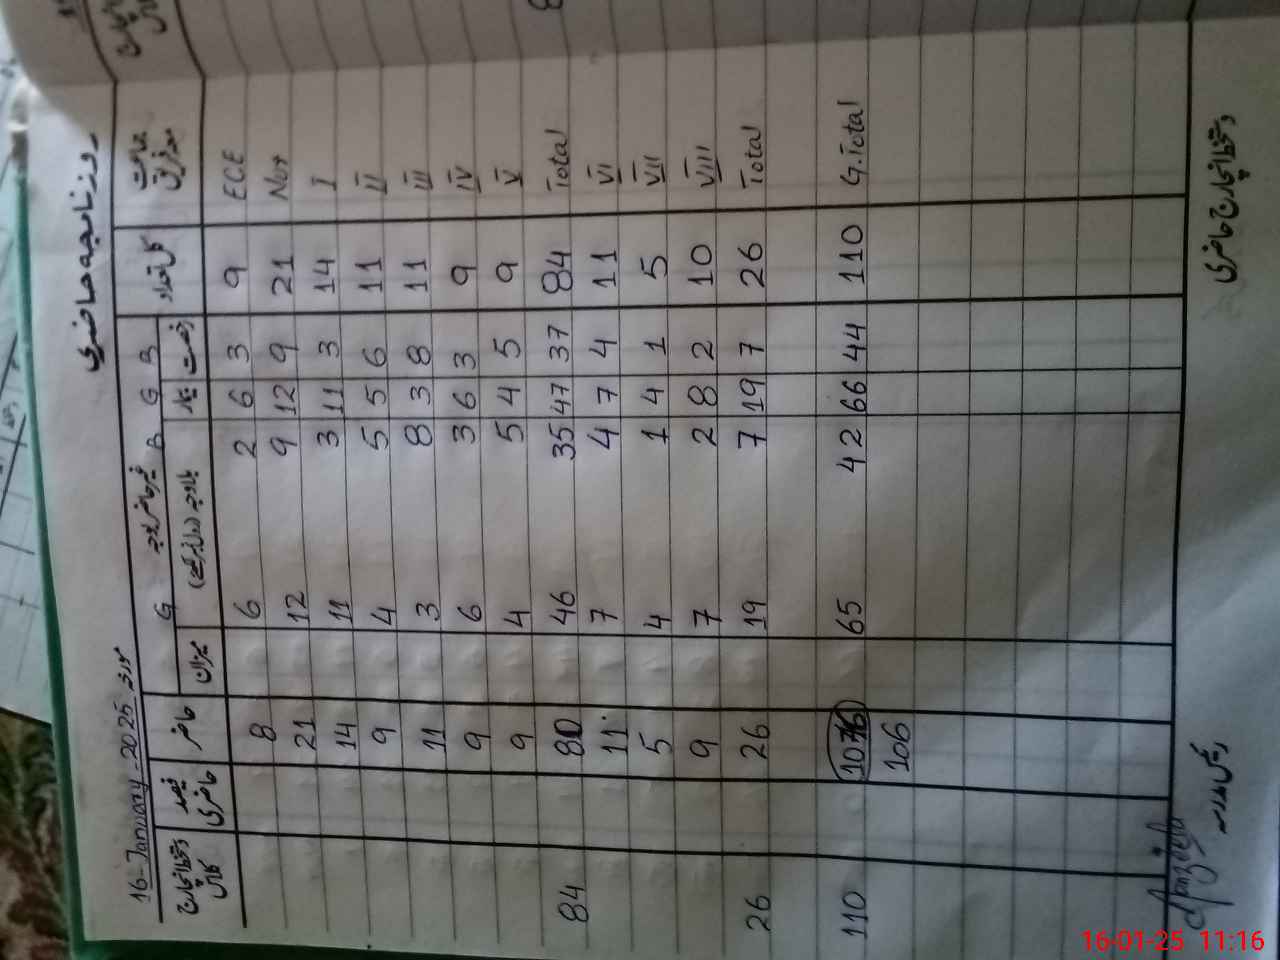 روزنامچہ حاضری
16-January-2025 مورخہ
جماعت معہ فریق کل تعداد B رخصت G بیمار B G میزان حاضر فیصد حاضری دستخط انچارج کلاس
ECE 9 3 6 2 6 8
Nur 21 9 12 9 12 21
I 14 3 11 3 11 14
II 11 6 5 5 4 9
III 11 8 3 8 3 11
IV 9 3 6 3 6 9
V 9 5 4 5 4 9
Total 84 37 47 35 46 80 84
VI 11 4 7 4 7 11
VII 5 1 4 1 4 5
VIII 10 2 8 2 7 9
Total 26 7 19 7 19 26 26
G.Total 110 44 66 42 65 110
106
دستخط انچارج حاضری
رئیس مدرسہ
16-01-25 11:16